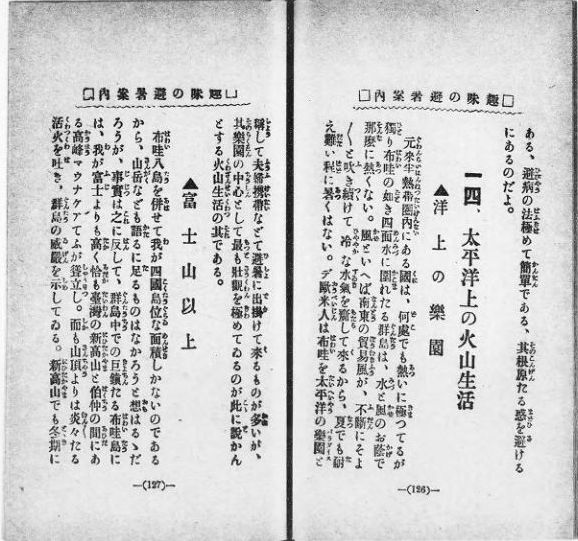 □内案暑避の味趣□
ある、避病の法極めて簡單である、其根原たる惑を避ける
にあるのだよ。
一四、太平洋上の火山生活
▲洋上の樂園
元來半熱帶圈內にある國は、何處でも熱いに極つてるが
獨り布哇の如き四面水に圍れたる群島は、水と風のお蔭で
那麼に熱くない。風といへば南東の貿易風が、不斷にそよ
〱と吹き續けて冷な水氣を齎して來るから、夏でも耐
え難い程に暑くはない。デ歐米人は布哇を太平洋の樂園と
—(126)—
□内案暑避の味趣□
稱して夫婦携帶などで避暑に出掛けて來るものが多いが、
其樂園の中心として最も壯觀を極めてゐるのが此に說かん
とする火山生活の其である。
▲富士山以上
布哇八島を併せて我が四國島位な面積しかないのである
から、山岳なども語るに足るものはなかろうと想はるゝだ
ろうが、事實は之に反して、群島中での巨鎭たる布哇島に
は、我が富士よりも高く恰も臺灣の新高山と伯仲の間にあ
る高峰マウナケアてふが聳立し。而も山頂よりは炎々たる
活火を吐き、群島の威嚴を示してゐる。新高山でも冬期に
—(127)—